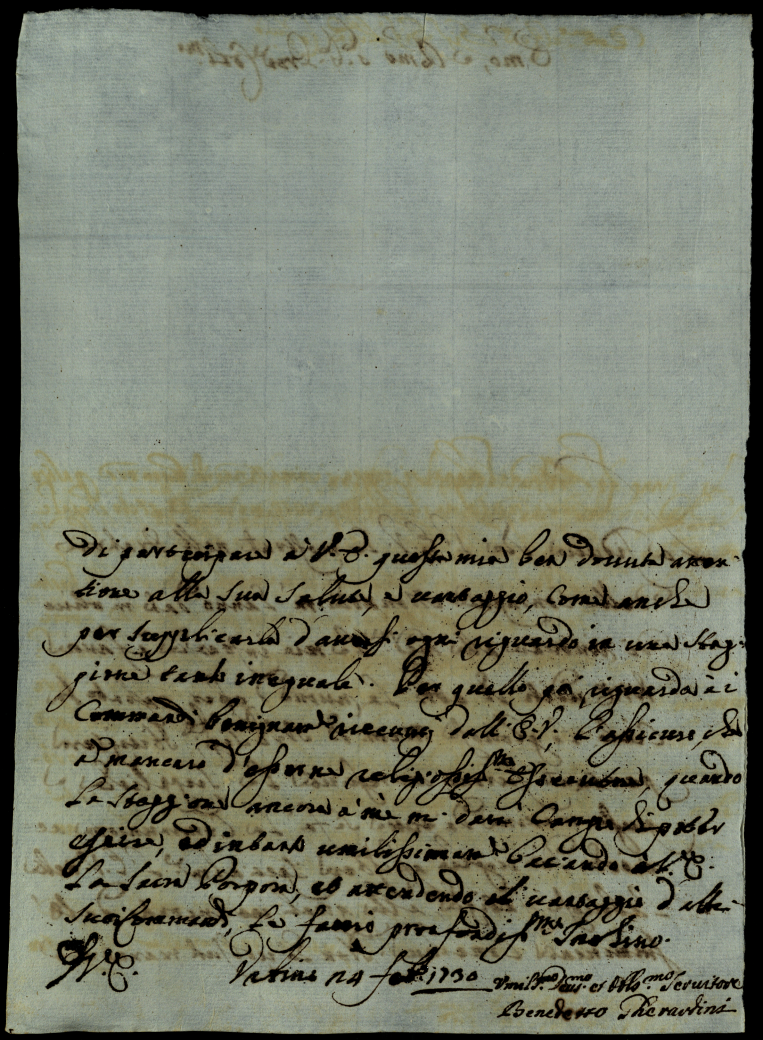 di partecipare à V. E. questa mia ben dovuta atten-
tione alla sua salute, e vantaggio, come anche
per supplicarla d'aversi ogni riguardo in una stag-
gione tanto ineguale. Per quello poi riguarda à i
Commandi benignam.te ricevuti dall'E. V., l'assicuro, che
mancarò d'esserne religiosiss.mo essecutore, quando
la staggione ancora à me mi darà Campo di poter
uscire, ed intanto umilissimam.te baciando à V. E.
la Sacra Porpora, et attendendo il vantaggio d'altri
suoi Commandi, le faccio profondiss.mo Inchino.
D. V. E. 24 feb.° 1730
Umil.mo Dev.mo et Obb.mo Servitore
Benedetto Gherardini